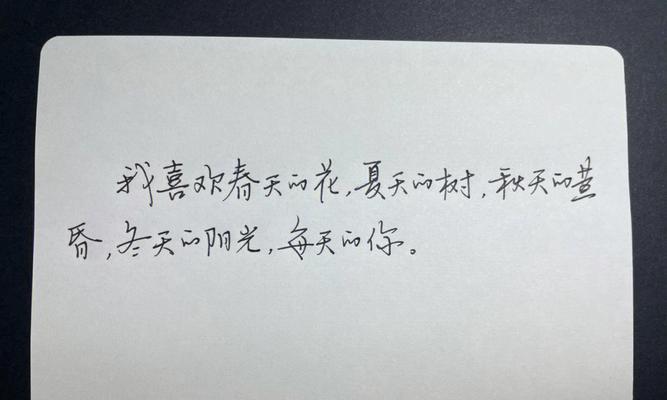 我喜欢春天的花,夏天的树,秋天的黄
昏,冬天的阳光,每天的你。